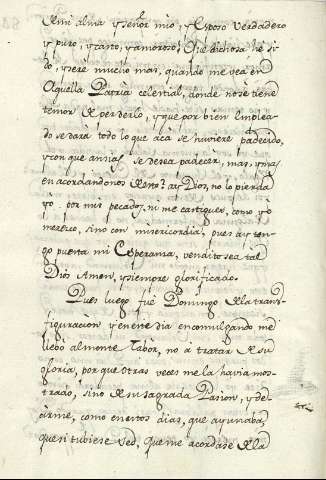 Demi alma, y señor mio, y Esposo verdadero
y puro, y santo, y amoroso! Que dichosa he si
do, y sere mucho mas, quando me vea en
Aquella Patria celestial, donde no se tiene
temor de perderlo, y que por bien emplea-
do se dará todo lo que acá se huviere padecido,
y con que ansias se desea padecer, mas, y mas
en acordandonos de esto? ay Dios, no lo pierda
yo por mis pecados, ni me castigues, como yo
merezco, sino con misericordia, pues ay ten-
go puesta mi Esperansa, vendito sea tal
Dios Amen, y siempre glorificado.
Pues luego fué Domingo de la trans-
figuracion y en ese dia en comulgando me
llebó al monte Tabor, no á tratar de su
gloria, por que otras veces me la havia mos-
trado, sino de su sagrada Pasion, y de-
sirme, como en estos dias, que ayunaba,
que si tubiese sed, que me acordase de la